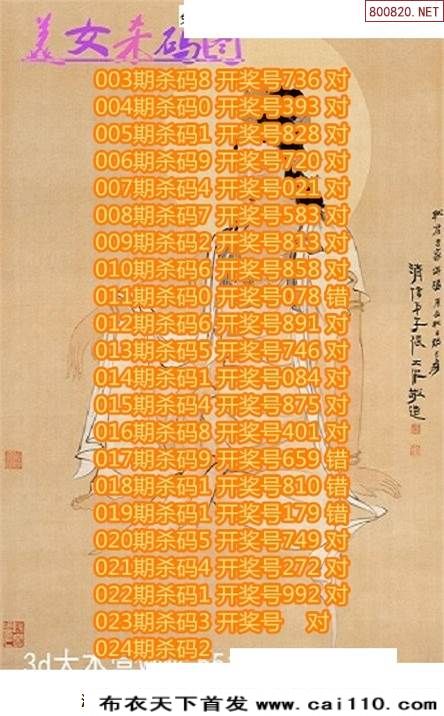 800820.NET
美女杀码图
003期杀码8 开奖号736 对
004期杀码0 开奖号393 对
005期杀码1 开奖号828 对
006期杀码9 开奖号720 对
007期杀码4 开奖号021 对
008期杀码7 开奖号583 对
009期杀码2 开奖号813 对
010期杀码6 开奖号858 对
011期杀码0 开奖号078 错
012期杀码6 开奖号891 对
013期杀码5 开奖号746 对
014期杀码1 开奖号084 对
015期杀码4 开奖号875 对
016期杀码8 开奖号401 对
017期杀码9 开奖号659 错
018期杀码1 开奖号810 错
019期杀码1 开奖号179 错
020期杀码5 开奖号749 对
021期杀码4 开奖号272 对
022期杀码1 开奖号992 对
023期杀码3 开奖号 对
024期杀码2
布衣天下首发 www.cai110.com